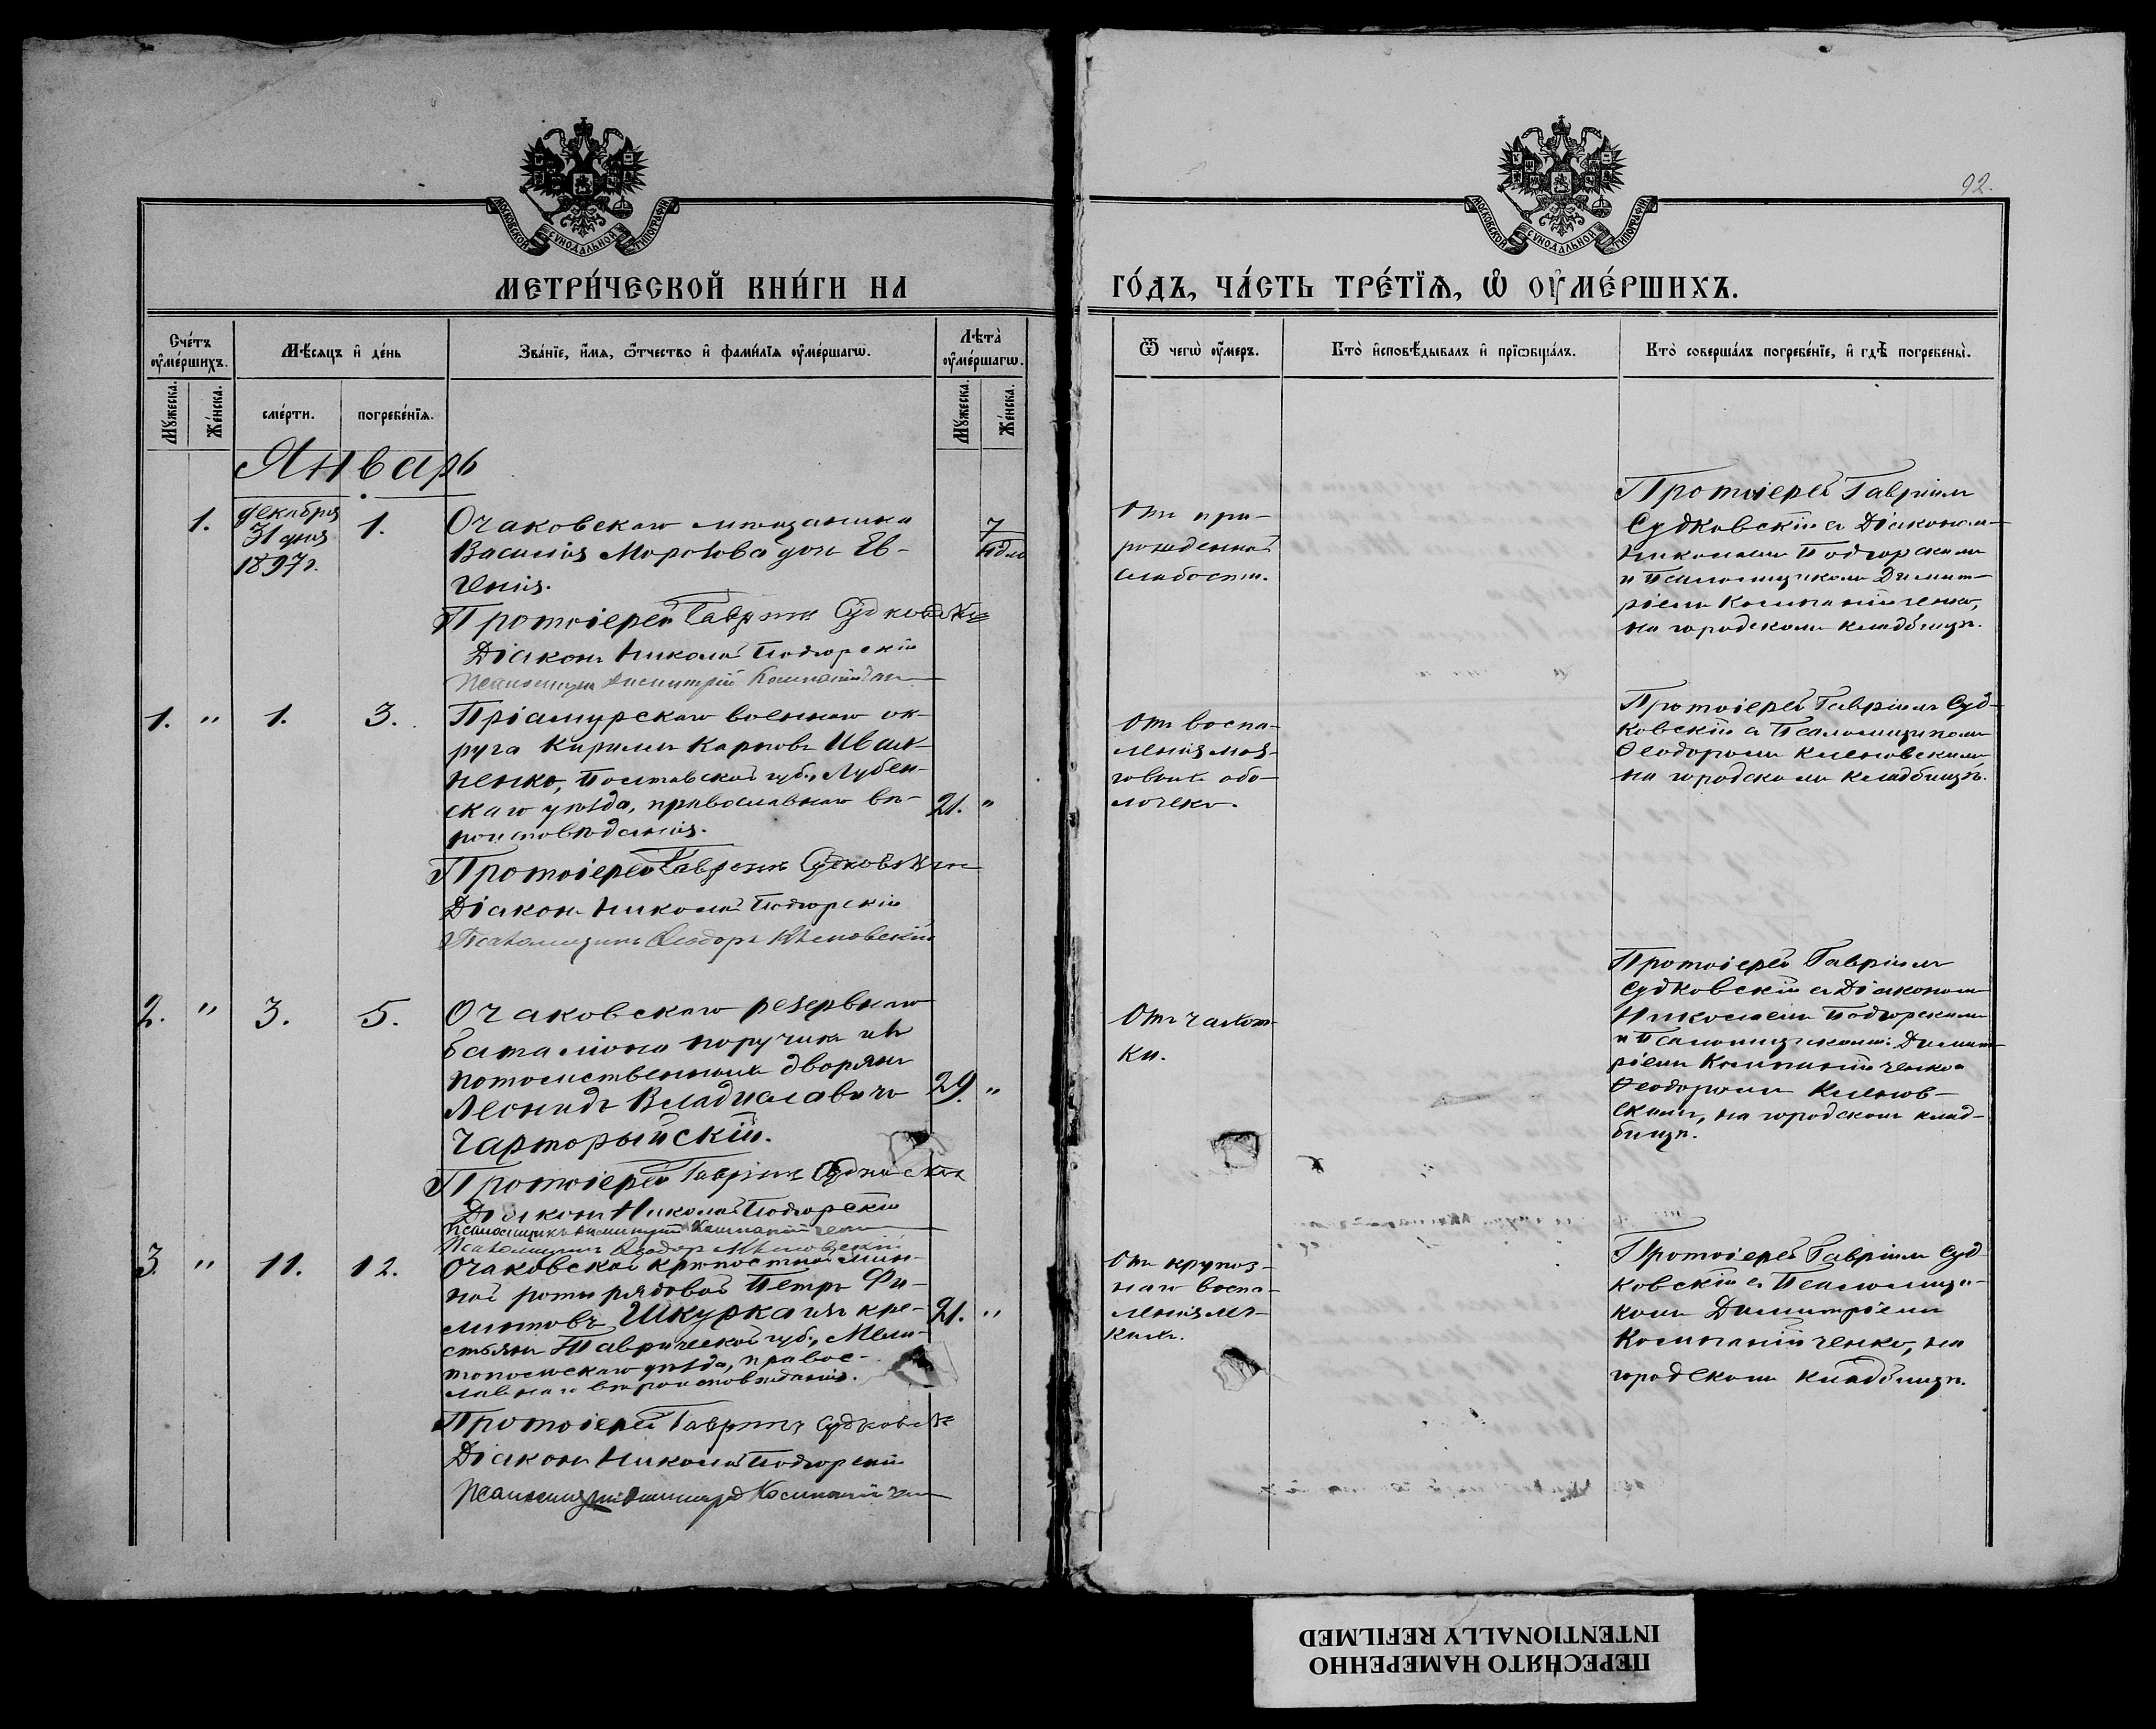 92.
МОСКОВСКОЙ СѴНОДАЛЬНОЙ ТИПОГРАФІИ
МОСКОВСКОЙ СѴНОДАЛЬНОЙ ТИПОГРАФІИ
МЕТРИ́ЧЕСКОЙ КНИ́ГИ НА
ГО́ДЪ, ЧА́СТЬ ТРЕ́ТЇѦ, Ѡ҆ ОУ҆МЕ́РШИХЪ.
Сче́тъ оу҆ме́ршихъ.
Мѣ́сяцъ и҆ де́нь
Зва́нїе, и҆́мя, ѻ҆́тчество и҆ фами́лїя оу҆ме́ршагѡ.
Лѣ́та оу҆ме́ршагѡ.
Ѿ чегѡ̀ оу҆́меръ.
Кто̀ и҆сповѣ́дывалъ и҆ прїѡбща́лъ.
Кто̀ соверша́лъ погребе́нїе, и҆ гдѣ̀ погребены̀.
Мꙋ́жеска.
Же́нска.
сме́рти.
погребе́нїя.
Мꙋ́жеска.
Же́нска.
Январь
1.
Декабря
31 дня
1897 г.
1.
Очаковскаго мѣщанина
Василія Морозова дочь Ев-
генія.
7
Протоіерей Гавріилъ Судковскій
Діаконъ Николай Подгорскій
Псаломщикъ Димитрій Компанійченко
Отъ при-
рожденной
слабости.
Протоіерей Гавріилъ
Судковскій съ Діакономъ
Николаемъ Подгорскимъ
и Псаломщикомъ Димит-
ріемъ Компанійченко,
на городскомъ кладбищѣ.
1. " 1. 3.
Пріамурскаго военнаго ок-
руга Кириллъ Карповъ Иван-
ненко, Полтавской губ., Лубен-
скаго уѣзда, православнаго вѣ-
роисповѣданія.
21. "
Протоіерей Гавріилъ Судковскій
Діаконъ Николай Подгорскій
Псаломщикъ Ѳеодоръ Кленовскій
Отъ воспа-
ленія моз-
говыхъ обо-
лочекъ.
Протоіерей Гавріилъ Суд-
ковскій съ Псаломщикомъ
Ѳеодоромъ Кленовскимъ
на городскомъ кладбищѣ.
2. " 3. 5.
Очаковскаго резервнаго
баталіона поручикъ изъ
потомственныхъ дворянъ
Леонидъ Владиславовъ
Чарторыйскій.
29. "
Протоіерей Гавріилъ Судковскій
Діаконъ Николай Подгорскій
Псаломщикъ Димитрій Компанійченко
Псаломщикъ Ѳеодоръ Кленовскій
Отъ чахот-
ки.
Протоіерей Гавріилъ
Судковскій съ Діакономъ
Николаемъ Подгорскимъ
и Псаломщиками: Димит-
ріемъ Компанійченко и
Ѳеодоромъ Кленов-
скимъ, на городскомъ клад-
бищѣ.
3. " 11. 12.
Очаковской крѣпостной мин-
ной роты рядовой Петръ Фи-
липповъ Шкурка изъ кре-
стьянъ Таврической губ., Мели-
топольскаго уѣзда, правос-
лавнаго вѣроисповѣданія.
21. "
Протоіерей Гавріилъ Судковскій
Діаконъ Николай Подгорскій
Псаломщикъ Димитрій Компанійченко
Отъ крупоз-
наго воспа-
ленія лег-
кихъ.
Протоіерей Гавріилъ Суд-
ковскій съ Псаломщи-
комъ Димитріемъ
Компанійченко, на
городскомъ кладбищѣ.
ПЕРЕСНЯТО НАМЕРЕННО
INTENTIONALLY REFILMED